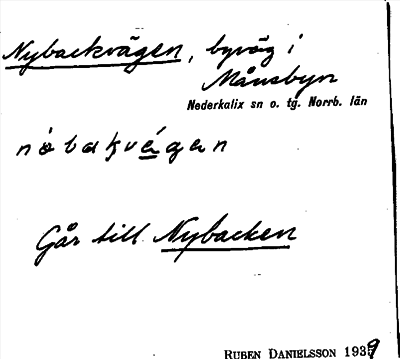 Nybackvägen, byväg i
Månsbyn
Nederkalix sn o. tg. Norrb. län
Går till Nybacken
RUBEN DANIELSSON 1939